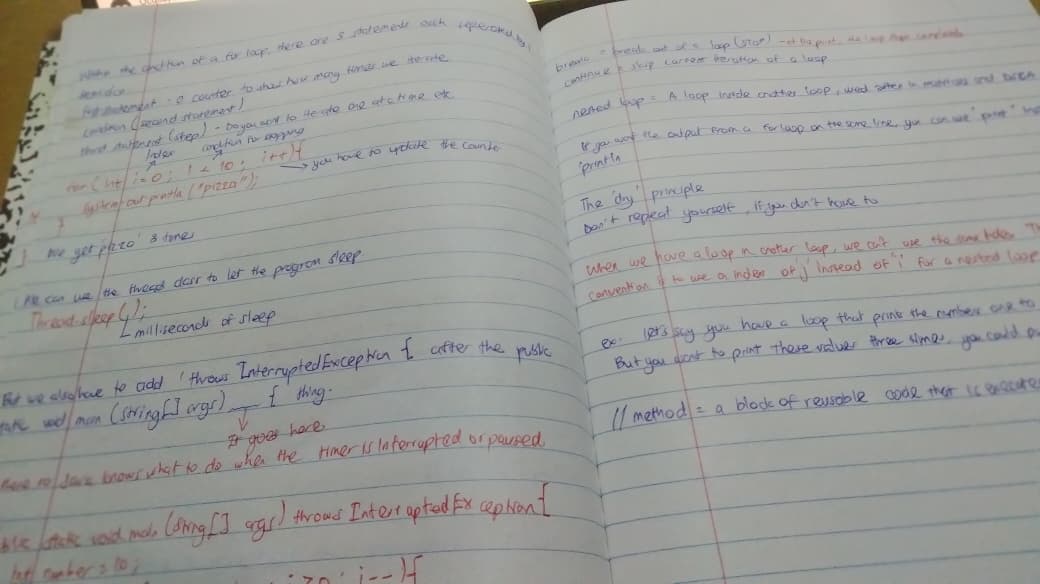 Within the condition of a for loop, there are 3 statements each seperated by
semicolon
first statement : a counter to show how many times we iterate
condition (second statement)
third statement (step) - Do you want to iterate one at a time etc
Index condition for stopping
for (int i=0; i < 10; i++){
→ you have to update the counter
System.out.println ("pizza");
}
we get pizza 3 times
We can use the thread class to let the program sleep
Thread.sleep( );
milliseconds of sleep
But we also have to add 'throws InterruptedException { after the public
static void main (String[] args) { thing.
It goes here
Java knows what to do when the timer is interrupted or paused
static void main (String[] args) throws InterruptedException {
int number = 10;
i>0; i--){
break = break out of a loop (STOP) - at the point, the loop stops completely
continue = skip current iteration of a loop
nested loop = A loop inside another loop, used often in matrices and
If you want the output from a for loop on the same line, you can use "print"
'println
The 'dry' principle
Don't repeat yourself, if you don't have to
When we have a loop in another loop, we can't use the same index
convention is to use a index of 'j' instead of 'i' for a nested loop
ex: let's say you have a loop that prints the numbers one to
But you want to print these values three times, you could
// method = a block of reusable code that is executed